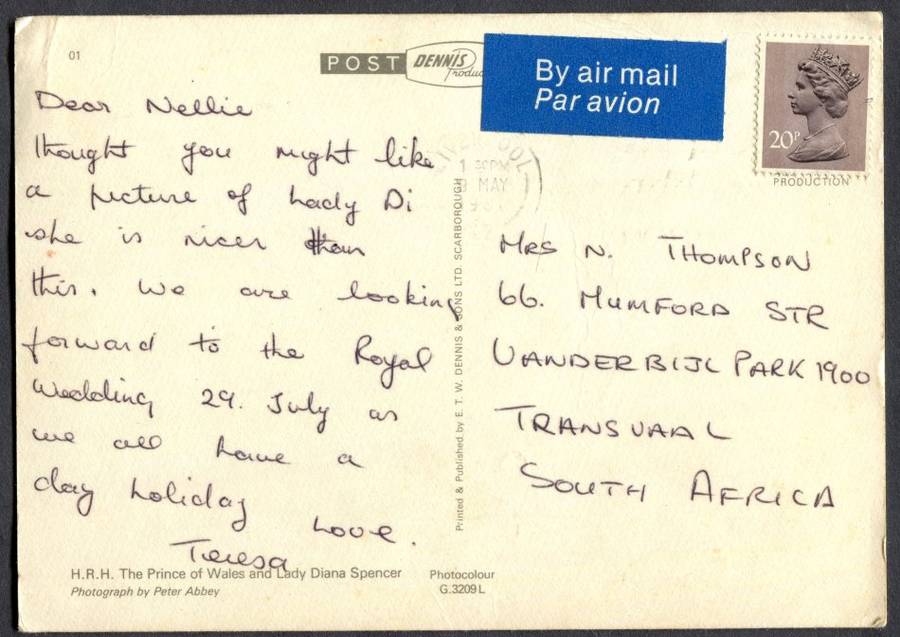 01
POST
DENNIS
Produc
By air mail
Par avion
20P
PRODUCTION
POOL
PM
MAY
Dear Nellie
thought you might like
a picture of Lady Di
she is nicer than
this. we are looking
forward to the Royal
Wedding 29. July as
we all have a
day holiday
Love.
Teresa
H.R.H. The Prince of Wales and Lady Diana Spencer
Photograph by Peter Abbey
Photocolour
G.3209L
Printed & Published by E. T. W. DENNIS & SONS LTD. SCARBOROUGH
MRS N. THOMPSON
66. MUMFORD STR
VANDERBIJL PARK 1900
TRANSVAAL
SOUTH AFRICA